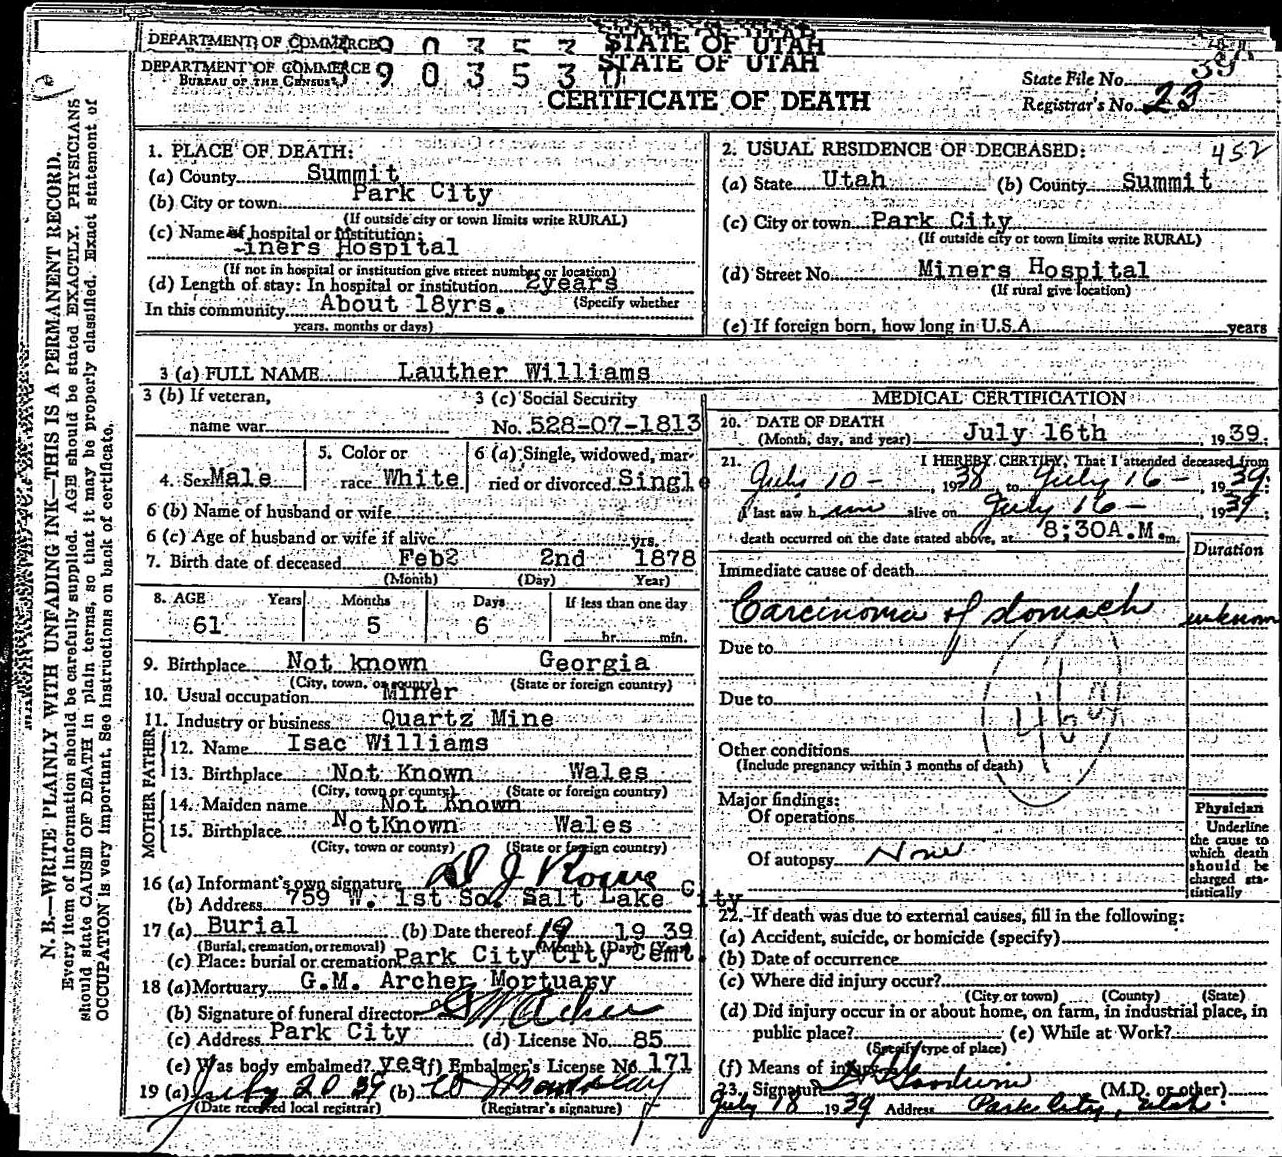 DEPARTMENT OF COMMERCE STATE OF UTAH
DEPARTMENT OF COMMERCE 3 9 0 3 5 3 0 STATE OF UTAH
BUREAU OF THE CENSUS
CERTIFICATE OF DEATH
State File No. 390
Registrar's No. 23
N. B.—WRITE PLAINLY WITH UNFADING INK—THIS IS A PERMANENT RECORD.
Every item of information should be carefully supplied. AGE should be stated EXACTLY. PHYSICIANS
should state CAUSE OF DEATH in plain terms, so that it may be properly classified. Exact statement of
OCCUPATION is very important. See instructions on back of certificate.
1. PLACE OF DEATH:
(a) County Summit
(b) City or town Park City
(If outside city or town limits write RURAL)
(c) Name of hospital or institution:
iners Hospital
(If not in hospital or institution give street number or location)
(d) Length of stay: In hospital or institution 2years
(Specify whether
In this community About 18yrs.
years, months or days)
2. USUAL RESIDENCE OF DECEASED: 452
(a) State Utah (b) County Summit
(c) City or town Park City
(If outside city or town limits write RURAL)
(d) Street No. Miners Hospital
(If rural give location)
(e) If foreign born, how long in U.S.A. years
3 (a) FULL NAME Lauther Williams
3 (b) If veteran,
name war
3 (c) Social Security
No. 528-07-1813
4. Sex Male
5. Color or
race White
6 (a) Single, widowed, mar-
ried or divorced Single
6 (b) Name of husband or wife
6 (c) Age of husband or wife if alive yrs.
7. Birth date of deceased Feb2 2nd 1878
(Month) (Day) Year)
8. AGE Years Months Days If less than one day
61 5 6 hr. min.
9. Birthplace Not known Georgia
(City, town, or county) (State or foreign country)
10. Usual occupation Miner
11. Industry or business Quartz Mine
FATHER
12. Name Isac Williams
13. Birthplace Not Known Wales
(City, town or county) (State or foreign country)
MOTHER
14. Maiden name Not Known
15. Birthplace NotKnown Wales
(City, town or county) (State or foreign country)
16 (a) Informant's own signature D J Rowe
(b) Address 759 W. 1st So. Salt Lake City
17 (a) Burial (b) Date thereof 19 19 39
(Burial, cremation, or removal) (Month) (Day) (Year)
(c) Place: burial or cremation Park City City Cemt.
18 (a) Mortuary G.M. Archer Mortuary
(b) Signature of funeral director G M Archer
(c) Address Park City (d) License No. 85
(e) Was body embalmed? yes (f) Embalmer's License No. 171
19 (a) July 20 39 (b)
(Date received local registrar) (Registrar's signature)
MEDICAL CERTIFICATION
20. DATE OF DEATH
(Month, day, and year) July 16th, 1939.
21. I HEREBY CERTIFY, That I attended deceased from
July 10 -, 1938 to July 16 -, 1939;
I last saw h im alive on July 16 -, 1939;
death occurred on the date stated above, at 8;30A.M. m.
Duration
Immediate cause of death
Carcinoma of stomach unknown
Due to
Due to
46a
Other conditions
(Include pregnancy within 3 months of death)
Major findings:
Of operations
Of autopsy None
Physician
Underline
the cause to
which death
should be
charged sta-
tistically
22. If death was due to external causes, fill in the following:
(a) Accident, suicide, or homicide (specify)
(b) Date of occurrence
(c) Where did injury occur?
(City or town) (County) (State)
(d) Did injury occur in or about home, on farm, in industrial place, in
public place? (e) While at Work?
(Specify type of place)
(f) Means of injury
23. Signature Goodwin (M.D. or other)
July 18 1939 Address Park City, Utah.